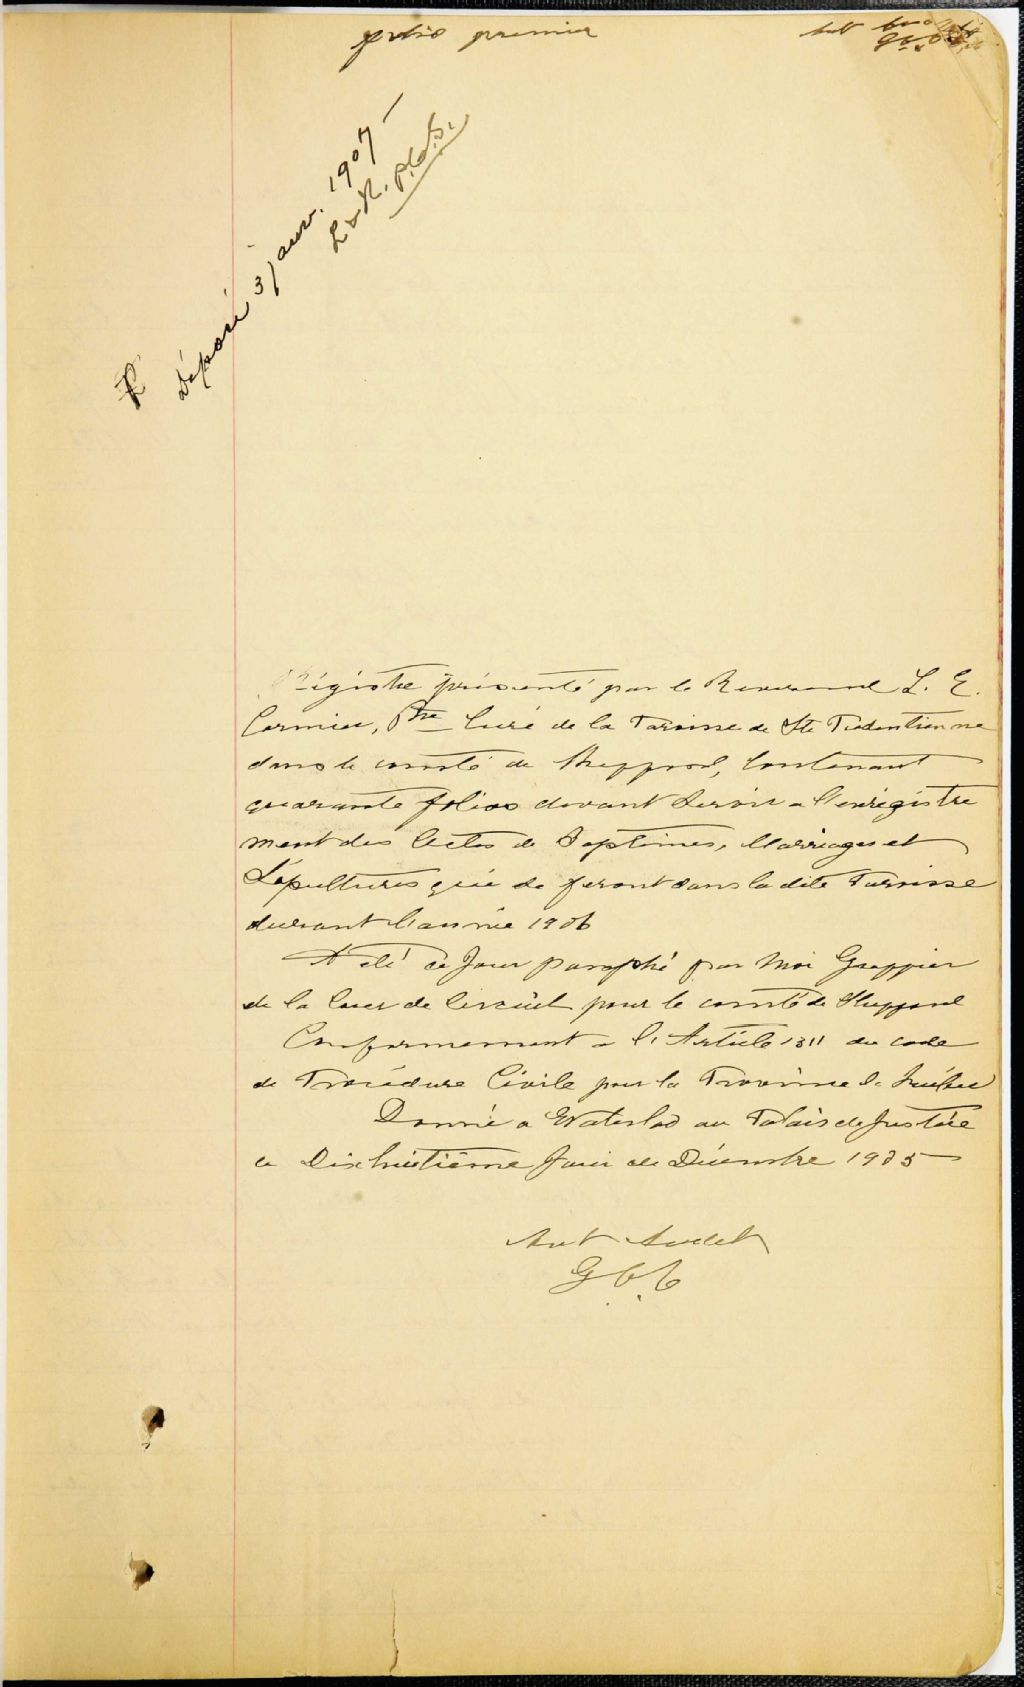 folio premier
Déposé 3 janv. 1907
L & R. p.c.s.
Régistre présenté par le Reverend L. E.
Cormier, Ptre Curé de la Paroisse de Ste Prudentienne
dans le comté de Shefford, Contenant
quarante folios devant servir a l'enrégistre
ment des Actes de Baptêmes, Marriages et
Sépultures qui se feront dans la dite Paroisse
durant l'année 1906
A été ce Jour paraphé par Moi Greffier
de la Cour de Circuit pour le comté de Shefford
Conformement a l'Article 1311 du code
de Procédure Civile pour la Province de Québec
Donné a Waterloo au Palais de Justice
ce Dixhuitième Jour de Décembre 1905
Ant Audet
G C C